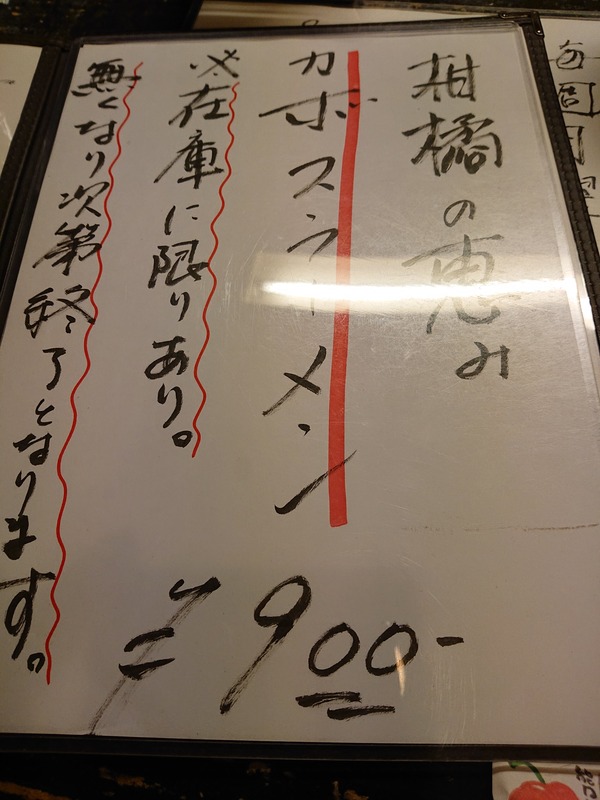 柑橘の恵み
カボスラーメン
※在庫に限りあり。
無くなり次第終了となります。
¥900-